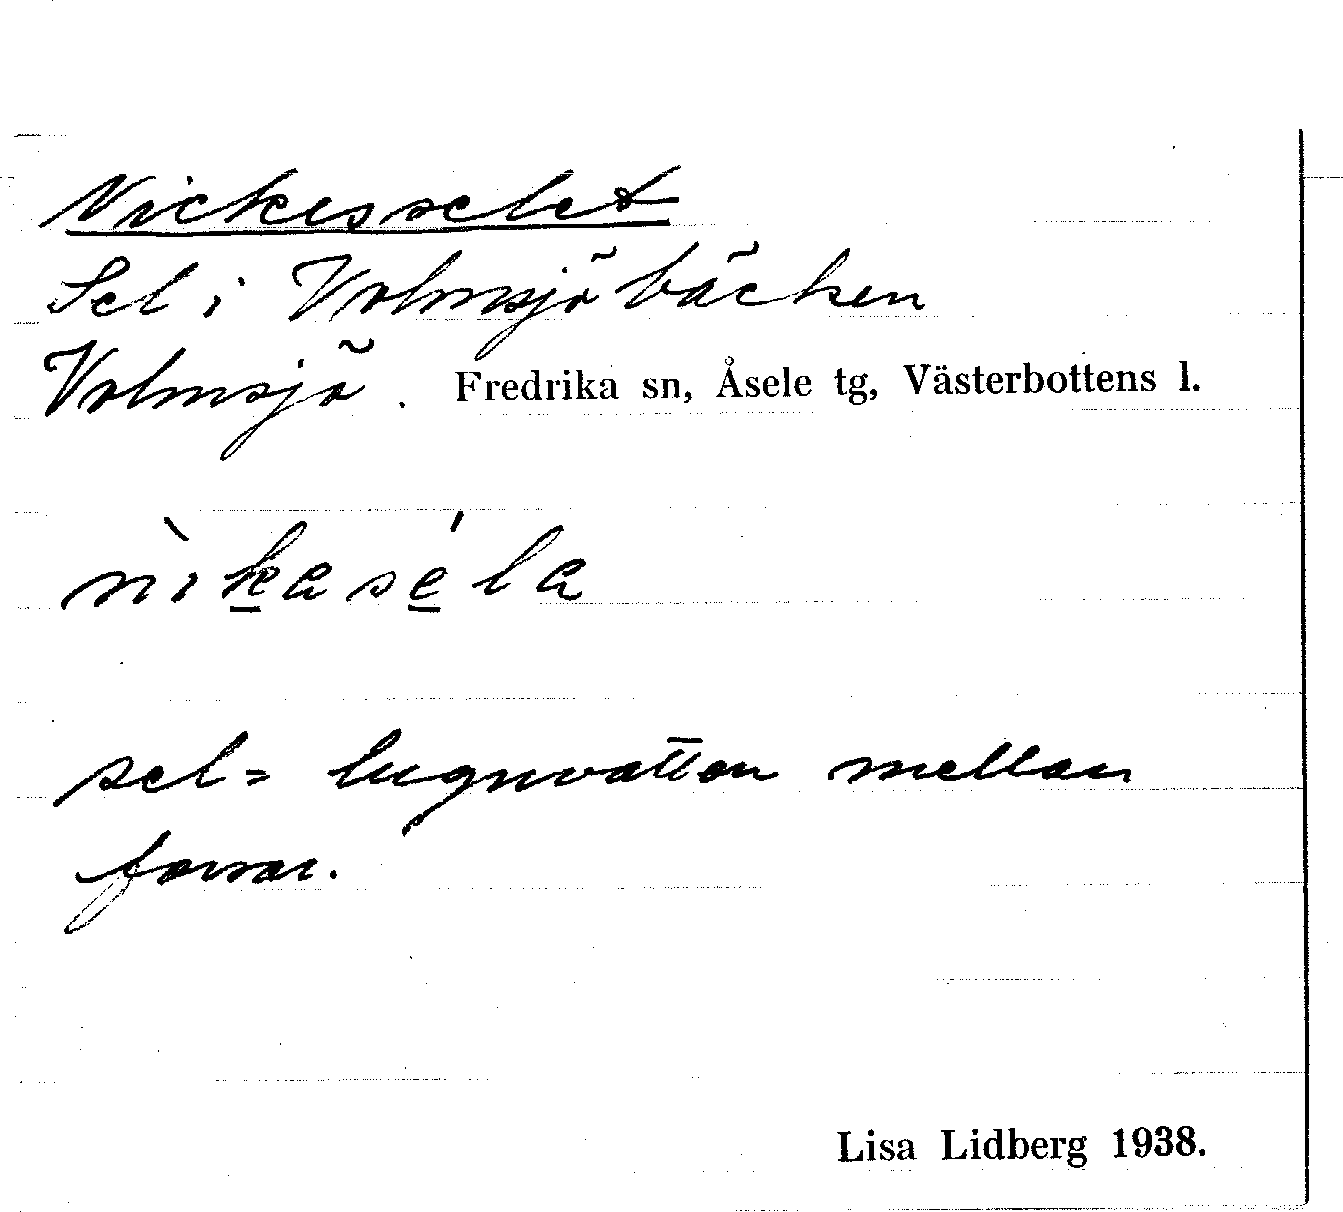 Nickesselet
Sel i Volmsjöbäcken
Volmsjö. Fredrika sn, Åsele tg, Västerbottens l.
nìkaséla
sel = lugnvatten mellan
forsar.
Lisa Lidberg 1938.